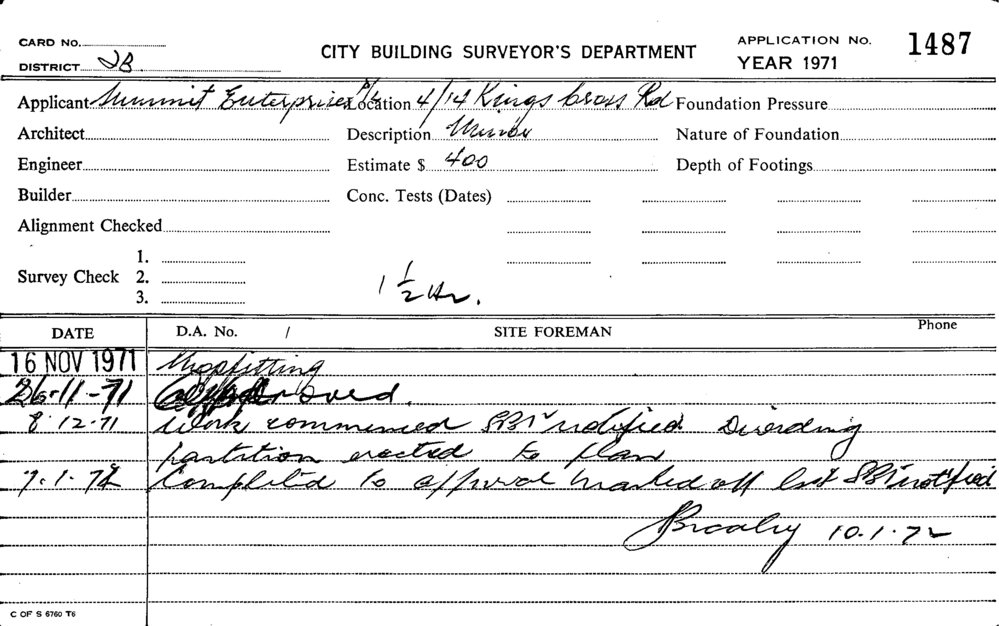 CARD No.
DISTRICT 2B
CITY BUILDING SURVEYOR'S DEPARTMENT
APPLICATION No. 1487
YEAR 1971
Applicant Summit Enterprises P/L Location 4/14 Kings Cross Rd Foundation Pressure
Architect Description Minor Nature of Foundation
Engineer Estimate $ 400 Depth of Footings
Builder Conc. Tests (Dates)
Alignment Checked
Survey Check 1.
2.
3.
1 1/2 Hr.
DATE D.A. No. / SITE FOREMAN Phone
16 NOV 1971 Shopfitting
26-11-71 Approved.
8.12.71 Work commenced notified Dividing
partition erected to plan
7.1.72 Completed to approval marked off list notified
10.1.72
C OF S 6760 T6